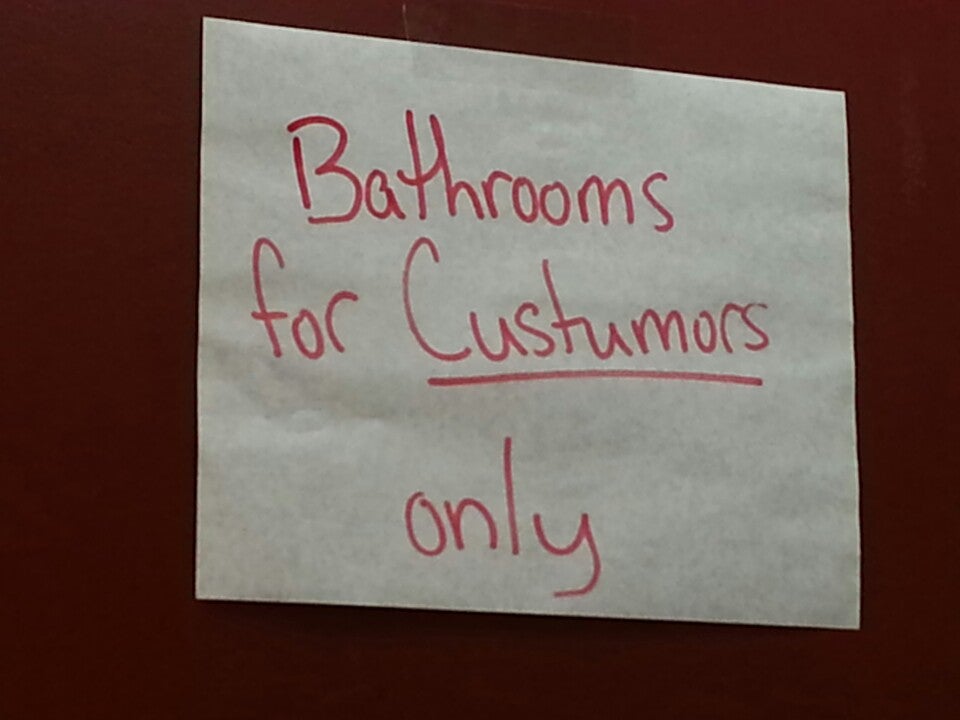 Bathrooms
for Custumors
only